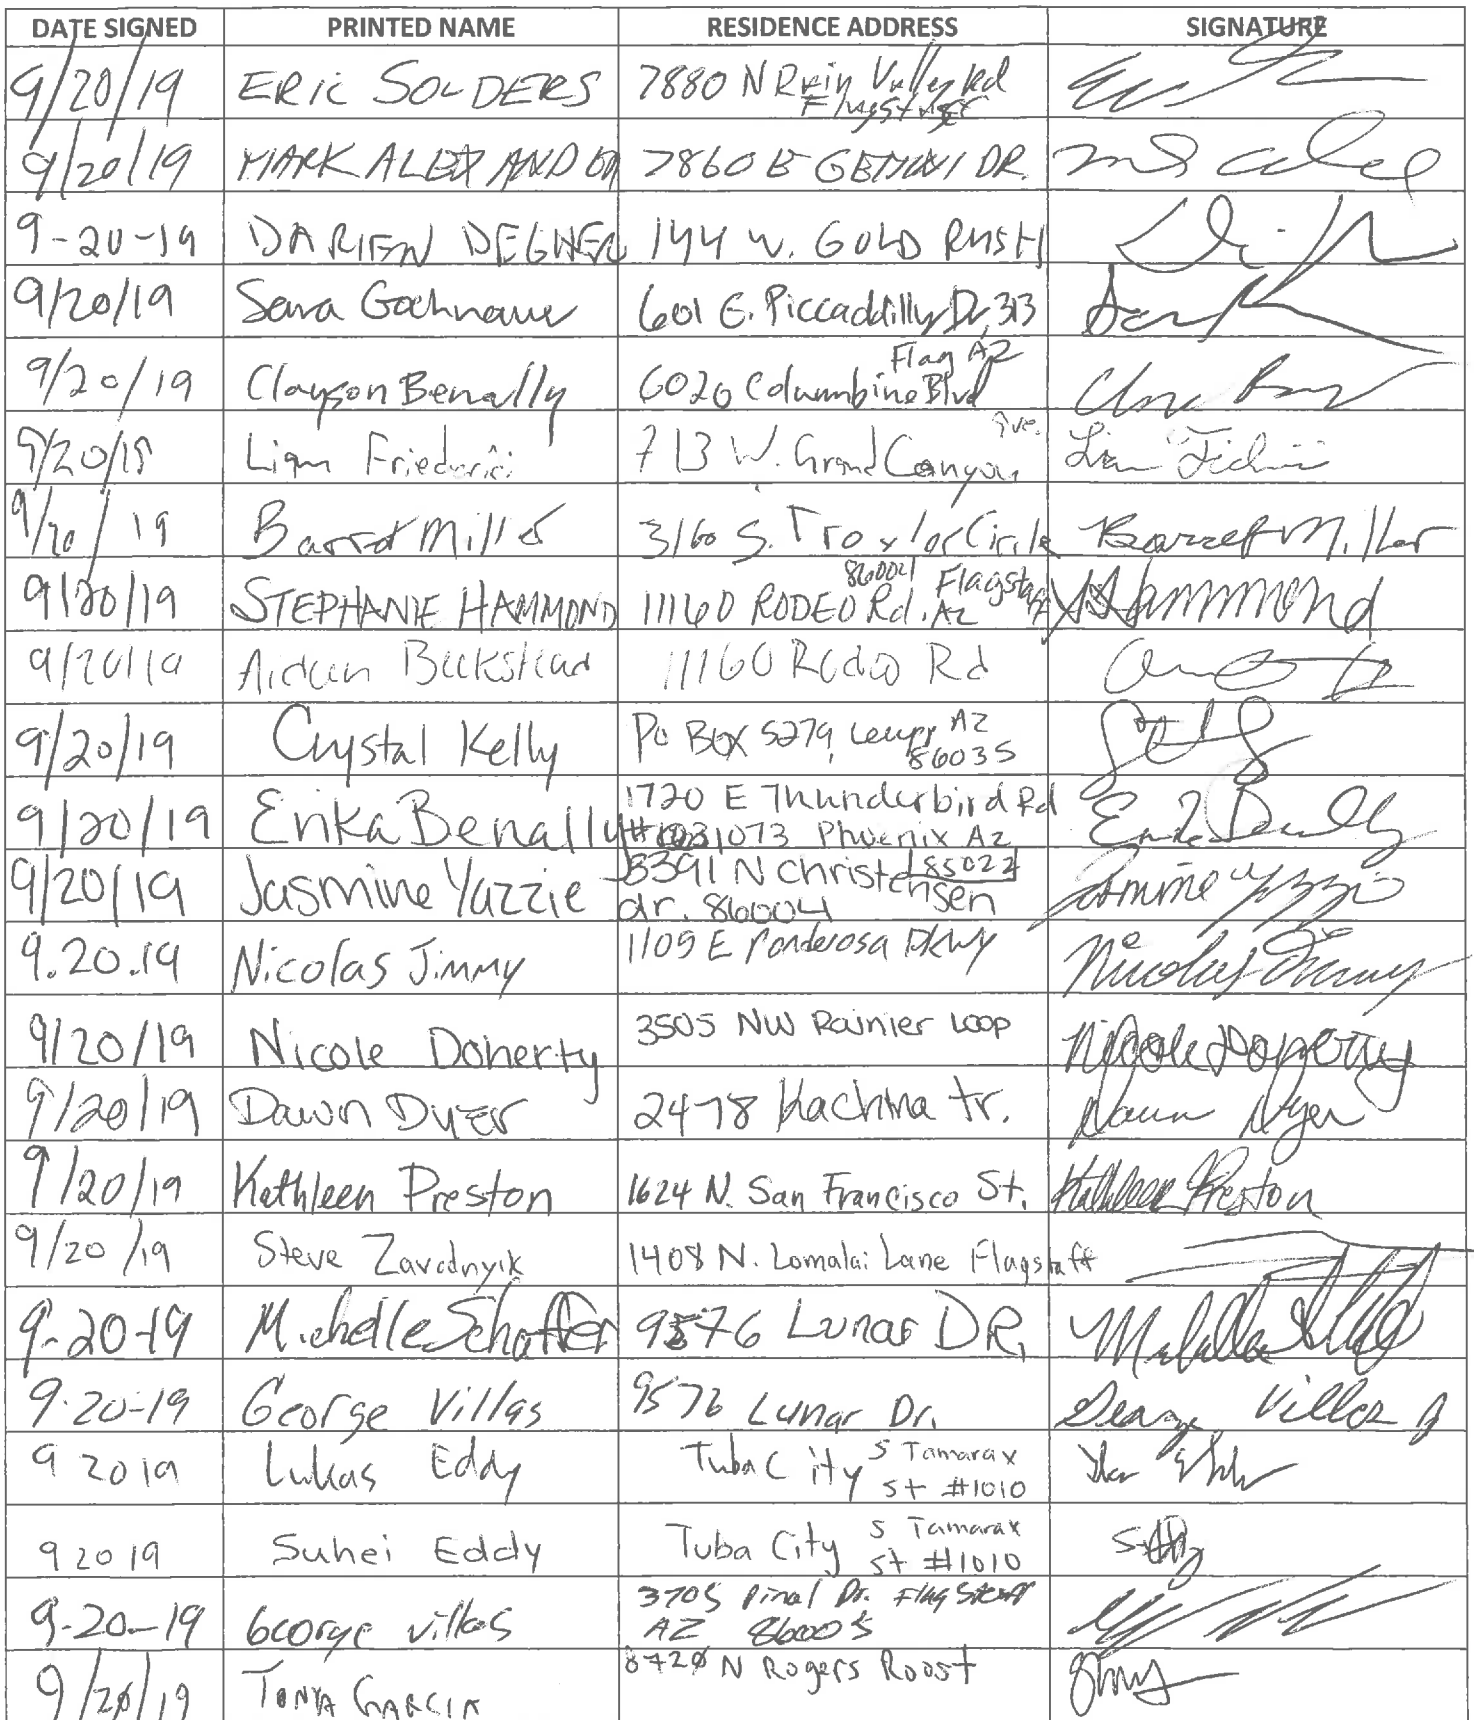 DATE SIGNED PRINTED NAME RESIDENCE ADDRESS SIGNATURE
9/20/19 ERIC SOUDERS 7880 N Rain Valley Rd
Flagstaff
9/20/19 MARK ALEXANDER 7860 E GEMINI DR.
9-20-19 DARIEN DEGNER 144 W. GOLD RUSH
9/20/19 Sara Gochnauer 601 E. Piccadilly Dr, 313
Flag AZ
9/20/19 Clayson Benally 6020 Columbine Blvd
Ave.
9/20/19 Liam Friederici 713 W. Grand Canyon Liam
9/20/19 Barret Miller 3160 S. Troxler Circle Barret Miller
86004 Flagstaff
9/20/19 STEPHANIE HAMMOND 11160 RODEO Rd. AZ SHammond
9/20/19 Aideen Beckstead 11160 Rodeo Rd
9/20/19 Crystal Kelly Po Box 5279, Leupp AZ
86035
1720 E Thunderbird Rd
9/20/19 Erika Benally 1073 Phoenix Az Erika Benally
85022
9/20/19 Jasmine Yazzie 8391 N Christensen Jasmine Yazzie
dr. 86004
9.20.19 Nicolas Jimmy 1109 E Ponderosa Pkwy Nicolas Jimmy
9/20/19 Nicole Doherty 3505 NW Rainier Loop Nicole Doherty
9/20/19 Dawn Dyer 2478 Kachina tr. Dawn Dyer
9/20/19 Kathleen Preston 1624 N. San Francisco St. Kathleen Preston
9/20/19 Steve Zavodnyik 1408 N. Lomalai Lane Flagstaff
9-20-19 Michelle Schaffer 9576 Lunar DR.
9-20-19 George Villas 9576 Lunar Dr. George Villas
9 20 19 Lukas Eddy Tuba City S Tamarax
St #1010
9 20 19 Suhei Eddy Tuba City S Tamarax
St #1010
9-20-19 George Villas 3705 Pinal Dr. Flagstaff
AZ 86005
9/20/19 TONYA GARCIA 8720 N Rogers Roost